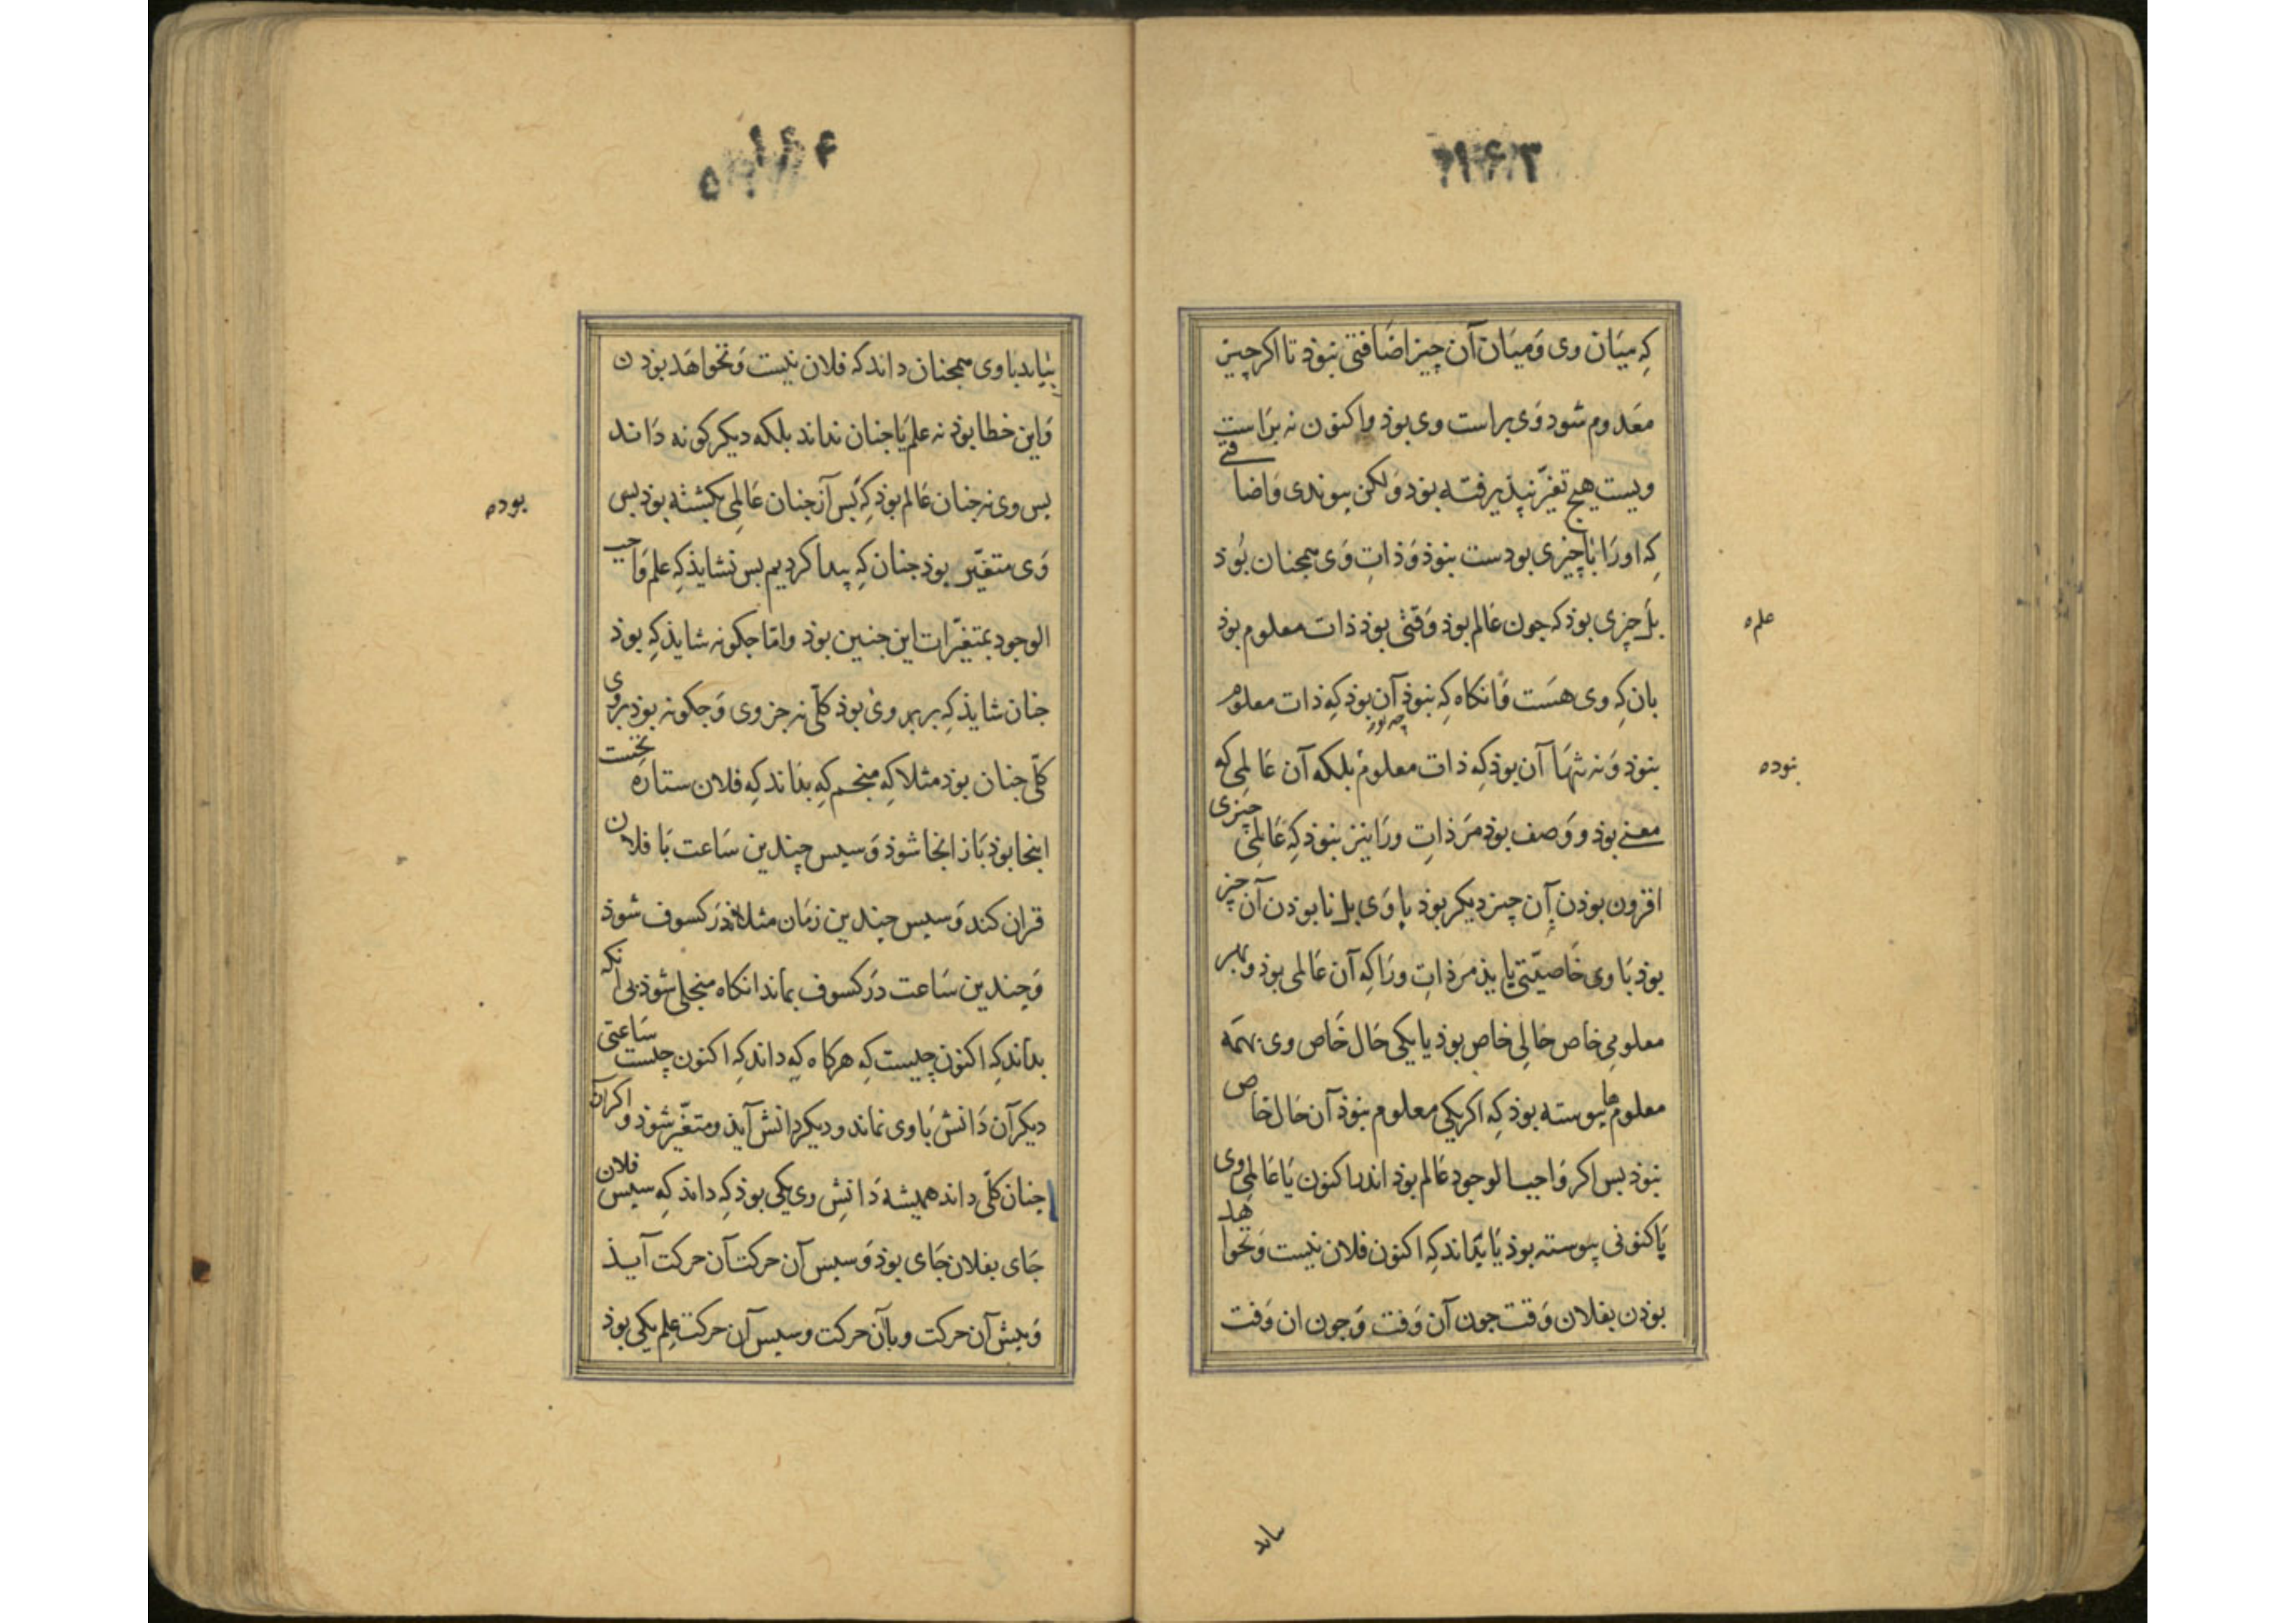 ۱۶۳
که میان وی و میان آن چیز اضافتی نبوذ تا اکر چیز
معدوم شود وی براست وی بوذ و اکنون نه براست
ویست هیچ تغیّر نپذیرفته بوذ ولکن پیوندی و اضافتی
که اورا باچیزی بودست نبوذ و ذاتِ وی همجنان بُوذ
بل چیزی بوذ که جون عالم بوذ وقتی بوذ ذات معلوم بوذ
علم۵
بان که وی هست وانکاه که نبوذ آن بوذ که ذات معلوم
نبوذ و نه تنها آن بوذ که ذات معلوم بلکه آن عالمِی که
نبوده
معنی بوذ و وصف بوذ مر ذاتِ ورا نیز نبوذ که عالمِی چیزی
افزون بوذن آن چیز دیکر بوذ با وی بل نابوذن آن چیز
بوذ با وی خاصیّتی یابذ مر ذاتِ ورا که آن عالمی بوذ و بهر
معلومِی خاص حالِی خاص بوذ یا یکی حال خاص وی بهمه
معلومها پیوسته بوذ که اکر یکی معلوم نبوذ آن حال خاص
نبوذ پس اکر واجب الوجود عالم بوذ اندر اکنون یا عالمِی وی
باکنونی پیوسته بوذ یا بداند که اکنون فلان نیست و نخواهد
بوذن بفلان وقت جون آن وقت و جون ان وقت
بیاید
۱۶۴
بیاید با وی همجنان داند که فلان نیست و نخواهد بوذن
و این خطا بوذ نه علم یا جنان نداند بلکه دیکر کونه داند
بس وی نه جنان عالم بوذ که بس از جنان عالمِی بکشته بوذ بس
بوده
وی متغیّر بوذ جنان که پیدا کردیم بس نشایذ که علم واجب
الوجود بمتغیّرات این جنین بوذ و امّا جکونه شایذ که بوذ
جنان شایذ که بر بهر وی بوذ کلّی نه جزوی و جکونه بوذ بروی
کلّی جنان بوذ مثلا که منجم که بداند که فلان ستاره نخست
اینجا بوذ باز انجا شوذ و سپس چندین ساعت با فلان
قران کند و سپس چندین زمان مثلا در کسوف شوذ
و چندین ساعت در کسوف بماند انکاه منجلی شوذ بی انکه
بداند که اکنون چیست که هرکاه که داند که اکنون چیست ساعتی
دیکر آن دانش با وی نماند و دیکر دانش آیذ و متغیّر شوذ و اکر آن
جنان کلّی داند همیشه دانشِ وی یکی بوذ که داند که سپس فلان
جای بفلان جای بوذ و سپس آن حرکت آن حرکت آیذ
و پیش آن حرکت و با آن حرکت و سپس آن حرکت علم یکی بوذ